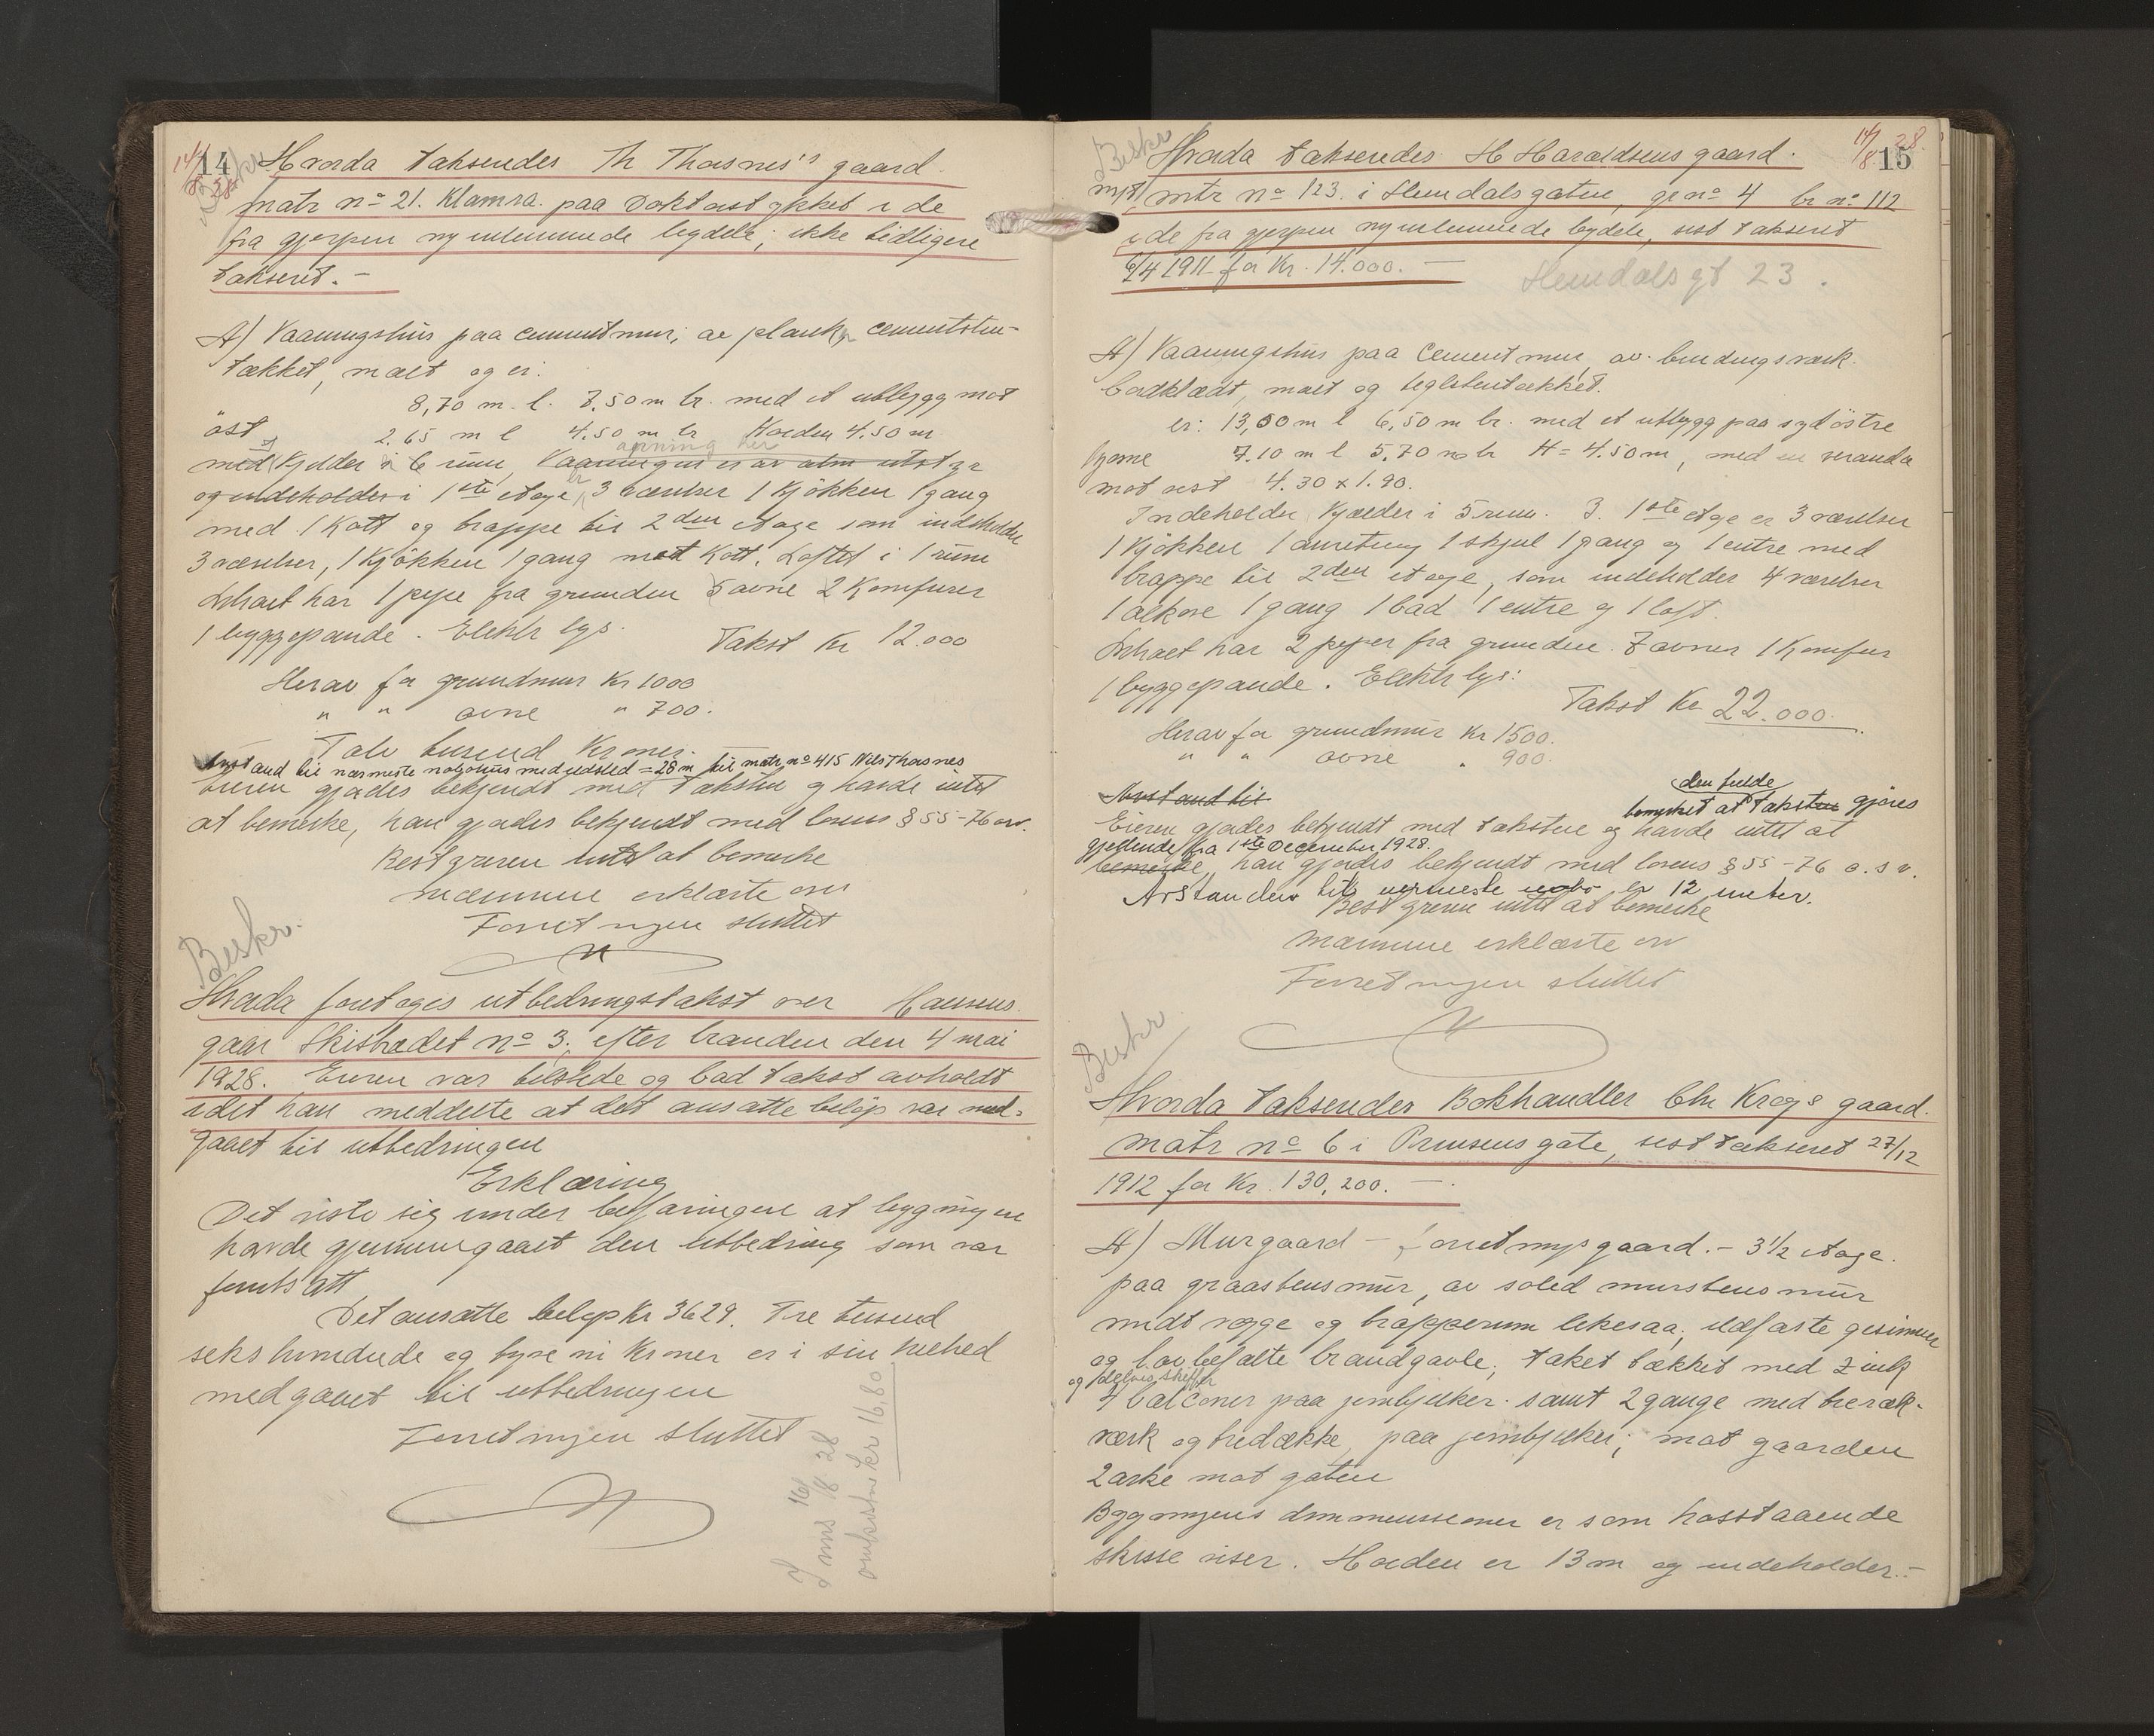 14
Beskr
Hvorda takseredes Th Thorsnes's gaard
matr nº 21. Klamra. paa Doktorstykket i de
fra gjerpen nyinlemmede bydele; ikke tidligere
takseret. –
A) Vaaningshus paa cementmur; av plank, cementsten-
tækket, malt og er:
8,70 m. l. 7,50 m br. med et utbygg mot
öst 2,65 m l 4.50 m br Höiden 4.50 m
med Kjelder i 6 rum, Vaaningen er av alm utstyr
og indeholder i 1ste etage 3 værelser 1 Kjökken 1 gang
med 1 Kott og trappe til 2den etage som indeholder
3 værelser, 1 Kjökken 1 gang med Kott. Loftet i 1 rum
Likaet har 1 pipe fra grunden 5 ovne 2 Komfurer
1 bryggepande. Elektr lys. Takst Kr 12.000
Herav for grundmur Kr 1000
" " ovne " 700.
Tolv tusend Kroner.
Avstand til nærmeste nabohus med ildsted = 28 m til matr nº 415 Nils Thorsnes
Eieren gjordes bekjendt med taksten og havde intet
at bemerke, han gjordes bekjendt med lovens § 55 – 76 osv.
Bestyreren intet at bemerke
Mændene erklærte osv
Forretningen sluttet
Beskr.
Hvorda foretoges utbedringstakst over Hansens
gaar Skistrædet nº 3; efter branden den 4 mai
1928. Eieren var tilstede og bad takst avholdt
idet han meddelte at det ansatte belöp var med-
gaaet til utbedringen
Erklæring
Det viste sig under befaringen at bygningen
havde gjennemgaaet den utbedring som var
forutsatt
Det ansatte belöp Kr 3629. Tre tusend
seks hundrede og tyve ni Kroner er i sin helhed
medgaaet til utbedringen
Forretningen sluttet
16/8 28
omkostn kr 16,80
Beskr
14/8 28.
15
Hvorda takseredes H Haraldsens gaard.
mtr nº 123. i Hemdalsgaten, gr nº 4 br nº 112
i de fra gjerpen nyinlemmede bydele, sist takseret
6/4 1911 for Kr. 14.000. –
Hemdalsgt 23.
A) Vaaningshus paa Cementmur, av bindingsværk.
bordklædt, malt og teglstentækket.
er: 13,00 m l 6,50 m br. med et utbygg paa sydöstre
hjörne 7.10 m l 5,70 m br H = 4.50 m, med en veranda
mot vest 4.30 x 1.90.
Indeholder Kjælder i 5 rum. I 1ste etage er 3 værelser
1 Kjökken 1 anretning 1 skjul 1 gang og 1 entre med
trappe til 2den etage, som indeholder 4 værelser
1 alkove 1 gang 1 bad 1 entre og 1 loft.
Likaet har 2 piper fra grunden. 7 ovner 1 Komfur
1 bryggepande. Elektr lys:
Takst Kr 22.000.
Herav for grundmur Kr 1500.
" " ovne " 900.
Avstand til
den fulde
bemerket at taksten gjöres
Eieren gjordes bekjendt med taksten og havde intet at
gjeldende fra 1ste December 1928.
bemerke, han gjordes bekjendt med lovens § 55 – 76 o.s.v.
Avstanden til nermeste nabo er 12 meter.
Bestyreren intet at bemerke
Mændene erklærte osv
Forretningen sluttet
Beskr
Hvorda takseredes Bokhandler Chr Krogs gaard.
matr nº 6 i Prinsensgate, sist takseret 27/12
1912 for Kr. 130,200. –
A) Murgaard – forretningsgaard. – 3 1/2 etage.
paa graastensmur, av soled murstensmur
midt vegge og trapperum likesaa; ildfaste gesimser
og lovbefalte brandgavle; taket tækket med zink
og delvis skifer
4 balconer paa jernbjelker. samt 2 gange med træræk-
værk og trædække, paa jernbjelker; mot gaarden
2 arke mot gaten
Bygningens dimmenssioner er som hosstaaende
skisse viser. Höiden er 13 m og indeholder. –